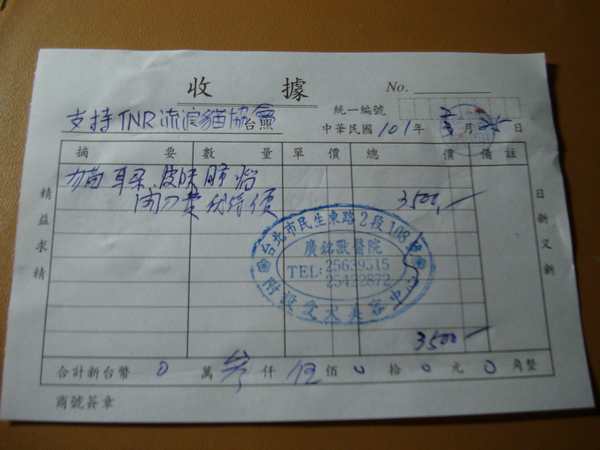 收據 No.
支持TNR流浪貓協會
統一編號
中華民國101年3月25日
摘要 數量 單價 總價 備註
耳朵 皮膚
開刀費 特價
3500
精益求精
日新又新
台北市民生東路2段108號
廣銘獸醫院
TEL:25639515
25422872
附設愛犬美容中心
3500
合計新台幣0萬參仟伍佰0拾0元0角整
商號簽章